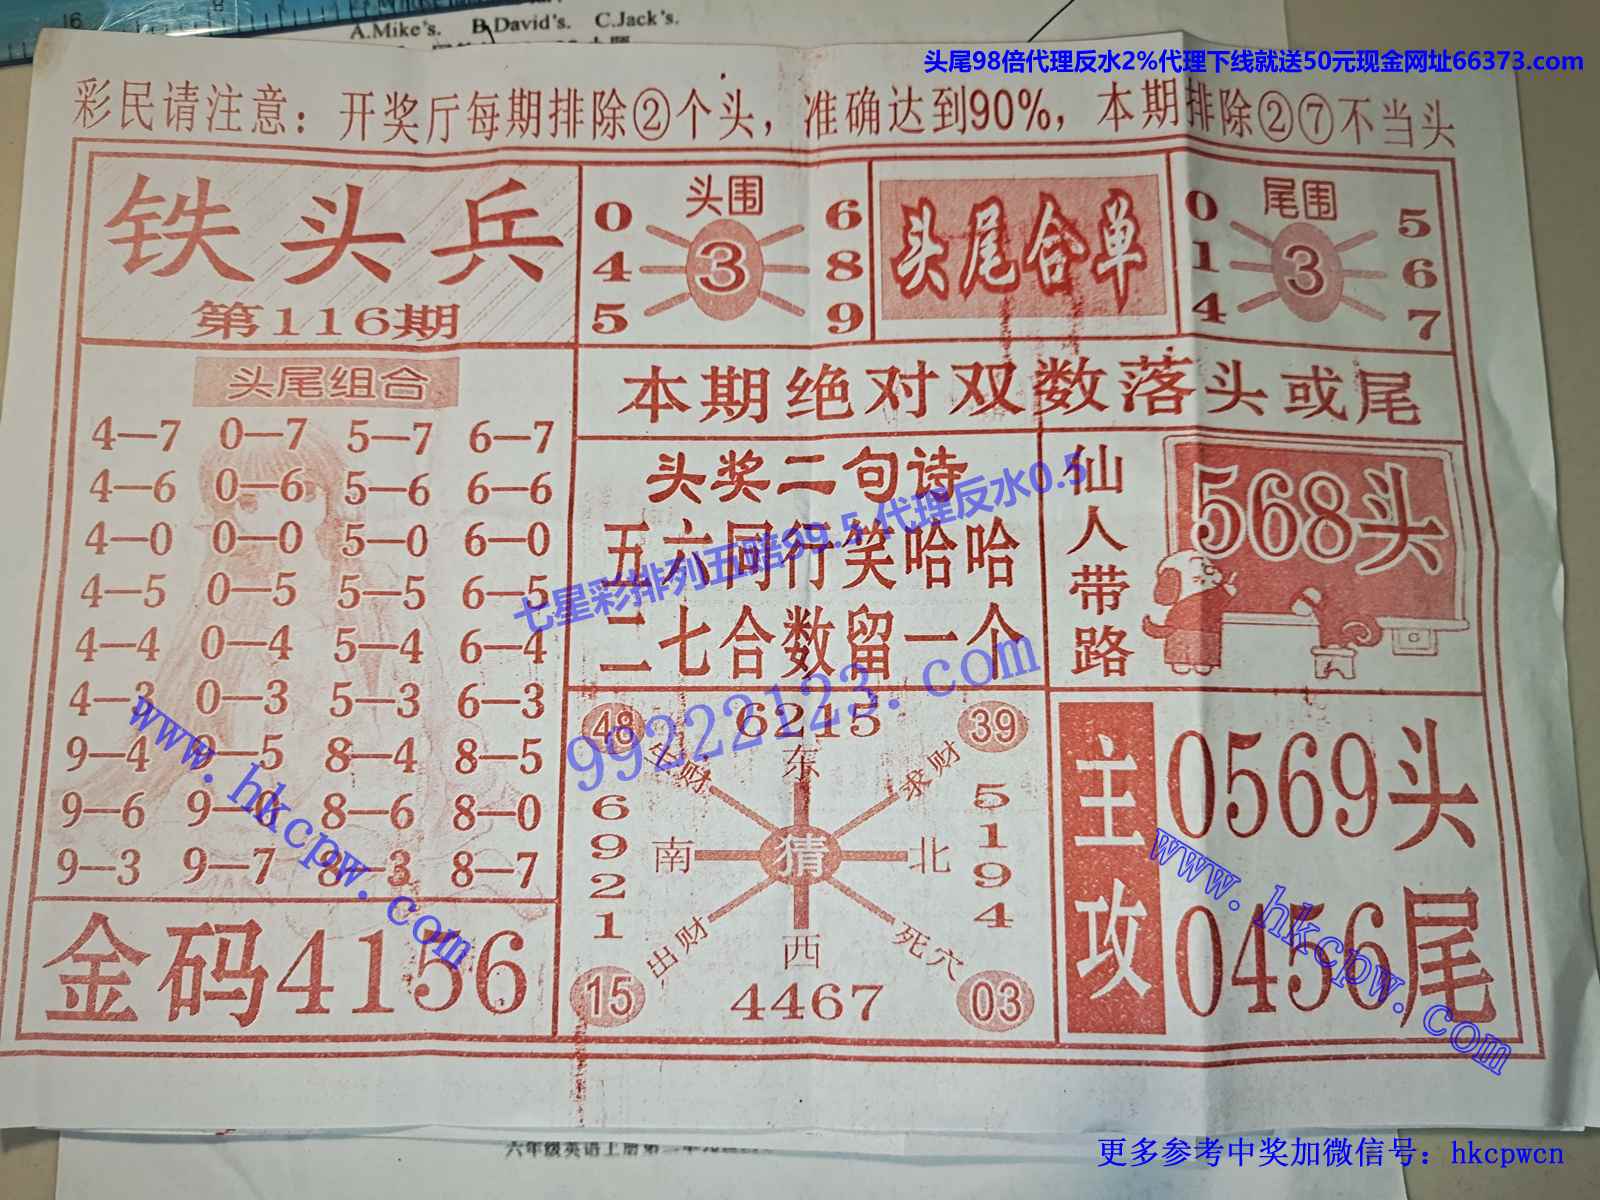 16
A.Mike's. B.David's. C.Jack's.
头尾98倍代理反水2%代理下线就送50元现金网址66373.com
彩民请注意：开奖厅每期排除②个头，准确达到90%，本期排除②⑦不当头
铁头兵
第116期
头围
0 6
4 3 8
5 9
头尾合单
尾围
0 5
1 3 6
4 7
头尾组合
4—7 0—7 5—7 6—7
4—6 0—6 5—6 6—6
4—0 0—0 5—0 6—0
4—5 0—5 5—5 6—5
4—4 0—4 5—4 6—4
4—3 0—3 5—3 6—3
9—4 9—5 8—4 8—5
9—6 9—0 8—6 8—0
9—3 9—7 8—3 8—7
金码4156
本期绝对双数落头或尾
头奖二句诗
五六同行笑哈哈
二七合数留一个
仙人带路
568头
48 6215 39
财 东 求财
6921
南 猜 北
5194
出财 西 死穴
15 4467 03
主攻
0569头
0456尾
七星彩排列五赔99.5 代理反水0.5
99222123.com
www.hkcpw.com
www.hkcpw.com
六年级英语上册第二单元
更多参考中奖加微信号：hkcpwcn